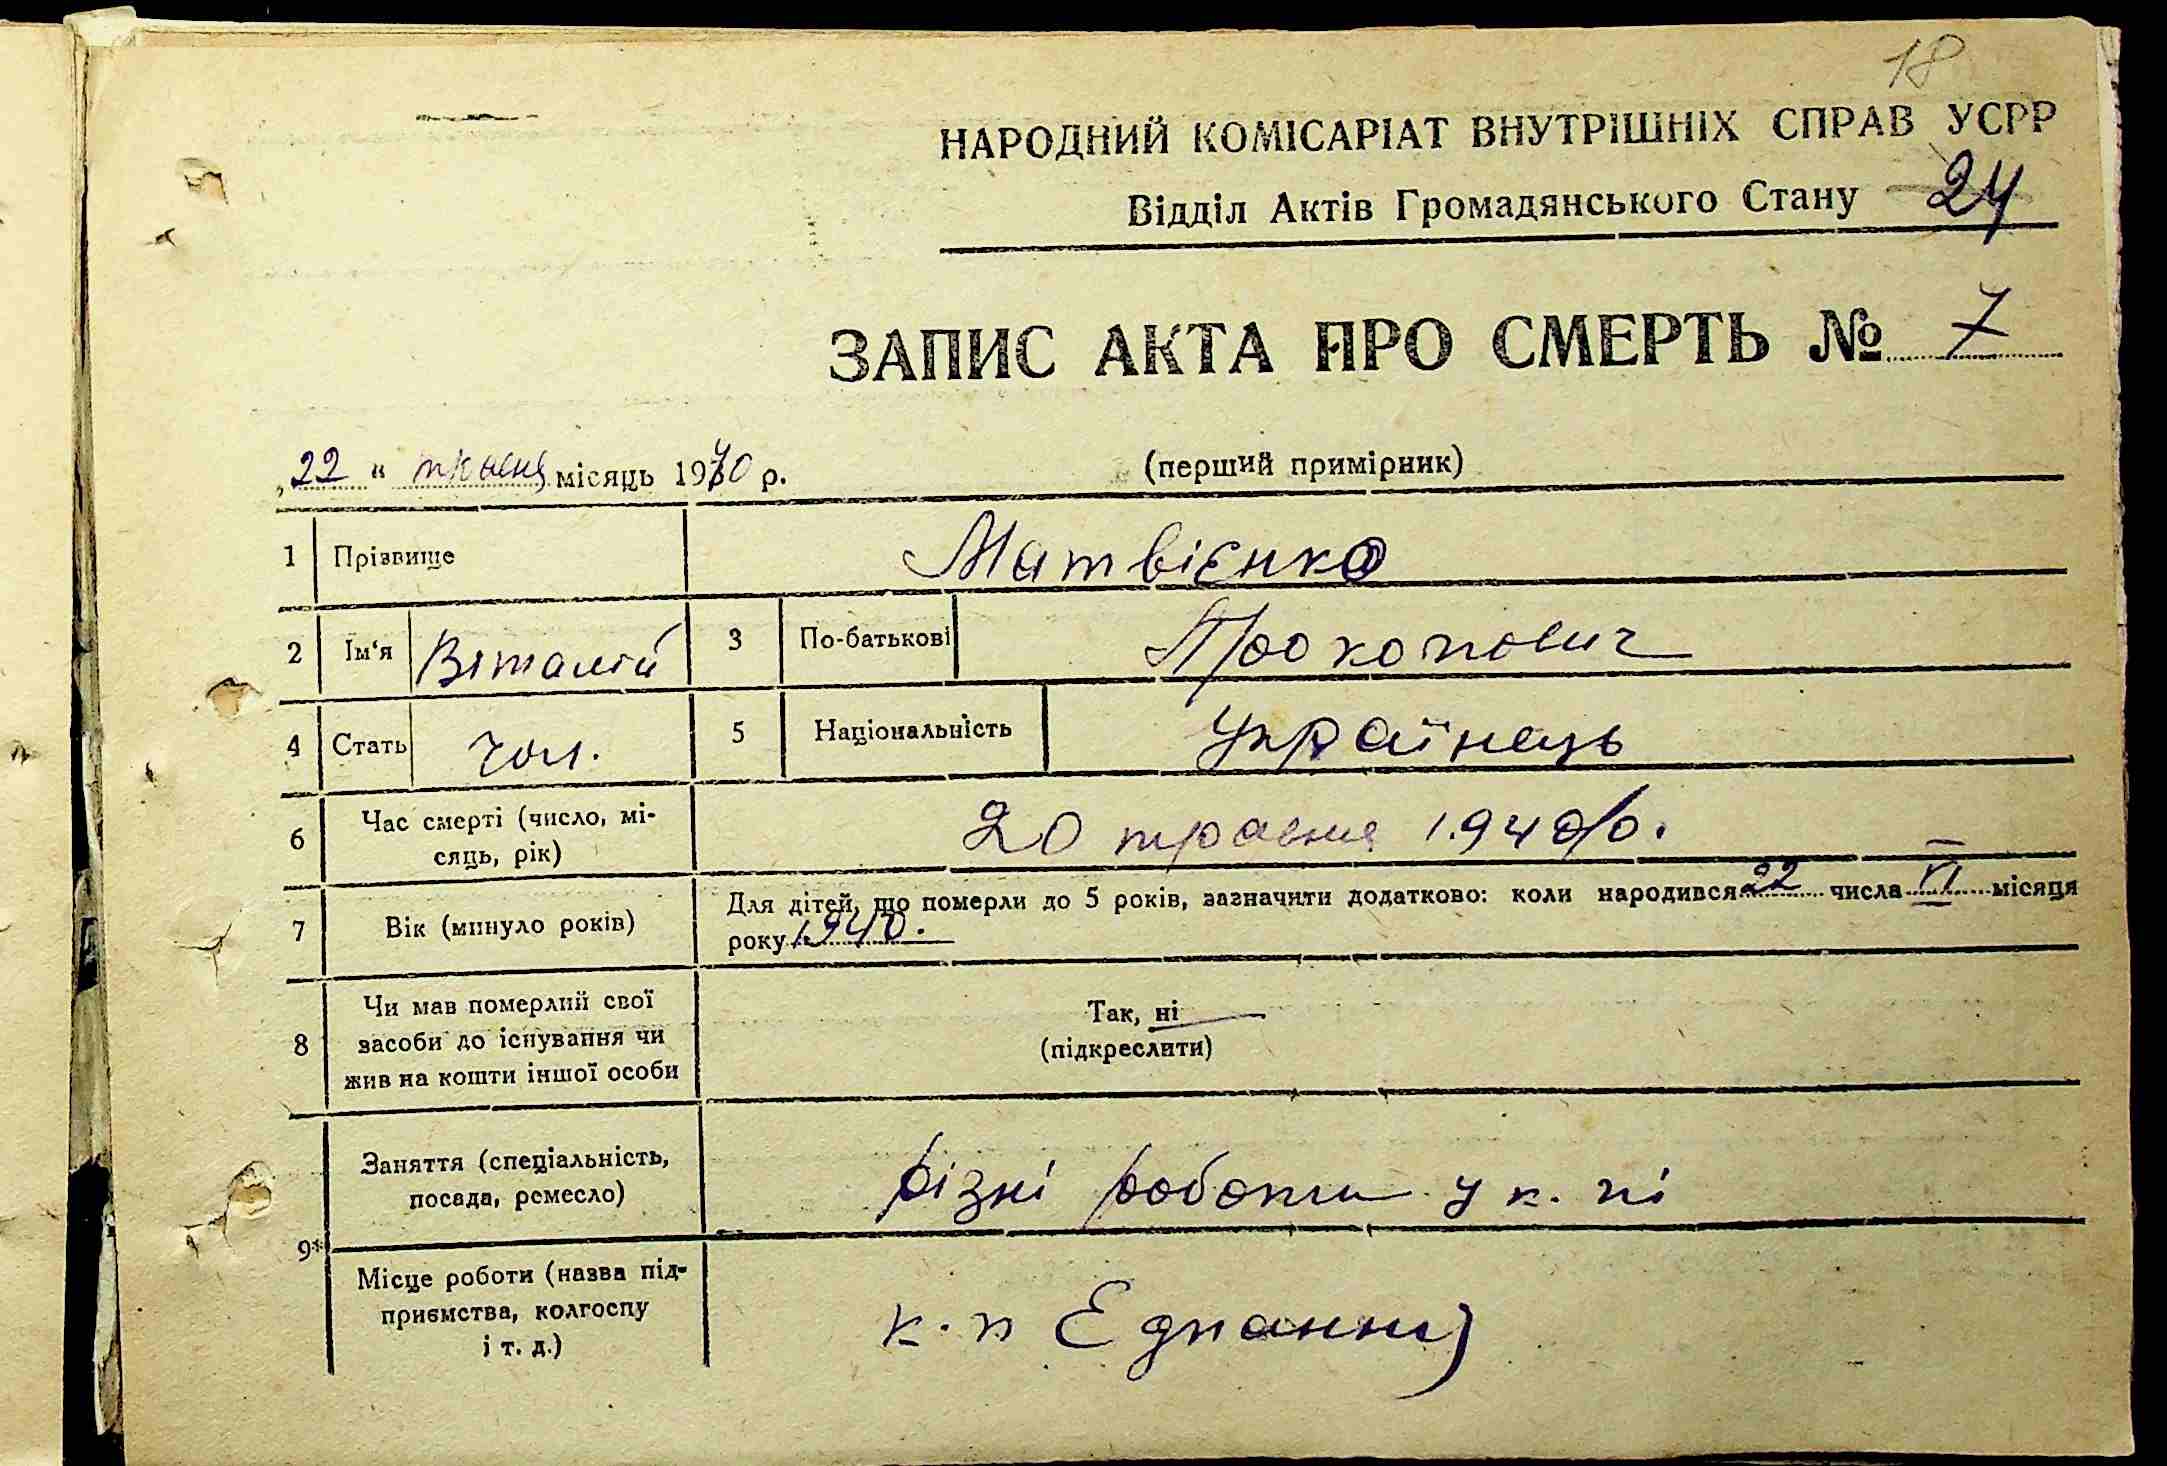 18
НАРОДНИЙ КОМІСАРІАТ ВНУТРІШНІХ СПРАВ УСРР
Відділ Актів Громадянського Стану 24
ЗАПИС АКТА ПРО СМЕРТЬ № 7
„22“ травня місяць 1940 р. (перший примірник)
1 Прізвище Матвієнко
2 Ім‘я Віталій 3 По-батькові Прокопович
4 Стать чол. 5 Національність Українець
6 Час смерті (число, мі-
сяць, рік) 20 травня 1940 р.
7 Вік (минуло років) Для дітей, що померли до 5 років, зазначити додатково: коли народився 22 числа VI місяця
року 1940.
8 Чи мав померлий свої
засоби до існування чи
жив на кошти іншої особи
Так, ні
(підкреслити)
9* Заняття (спеціальність,
посада, ремесло) різні роботи у к. пі
Місце роботи (назва під-
приємства, колгоспу
і т. д.) к. п Еднання